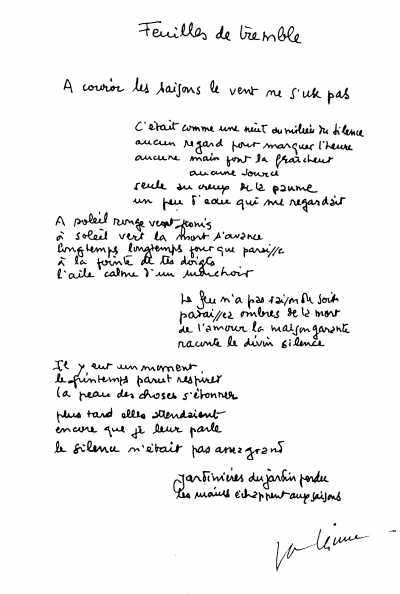 Feuilles de tremble
A courir les saisons le vent ne s'use pas
C'était comme une nuit du milieu du silence
aucun regard pour marquer l'heure
aucune main pour la fraîcheur
aucune source
seule au creux de la paume
un peu d'eau qui me regardait
A soleil rouge vent
à soleil vert la mort s'avance
longtemps longtemps pour que paraisse
à la pointe de tes doigts
l'aile calme d'un mouchoir
Le feu n'a pas saison
paraissez ombres de la mort
de l'amour la maison garante
raconte le divin silence
Il y eut un moment
le printemps parut respirer
la peau des choses s'étonner
plus tard elles attendaient
encore que je leur parle
le silence n'était pas assez grand
Jardinières du jardin perdu
les mains échappent aux saisons